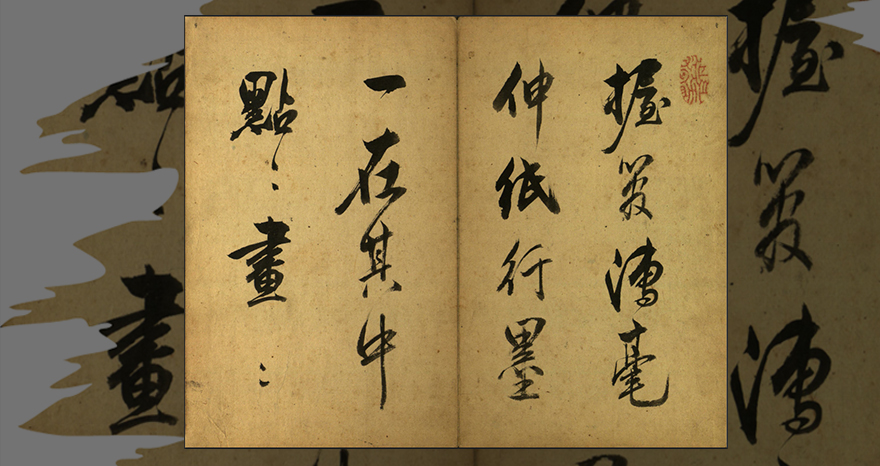 握管濡毫
伸紙行墨
一在其中
點〻畫〻